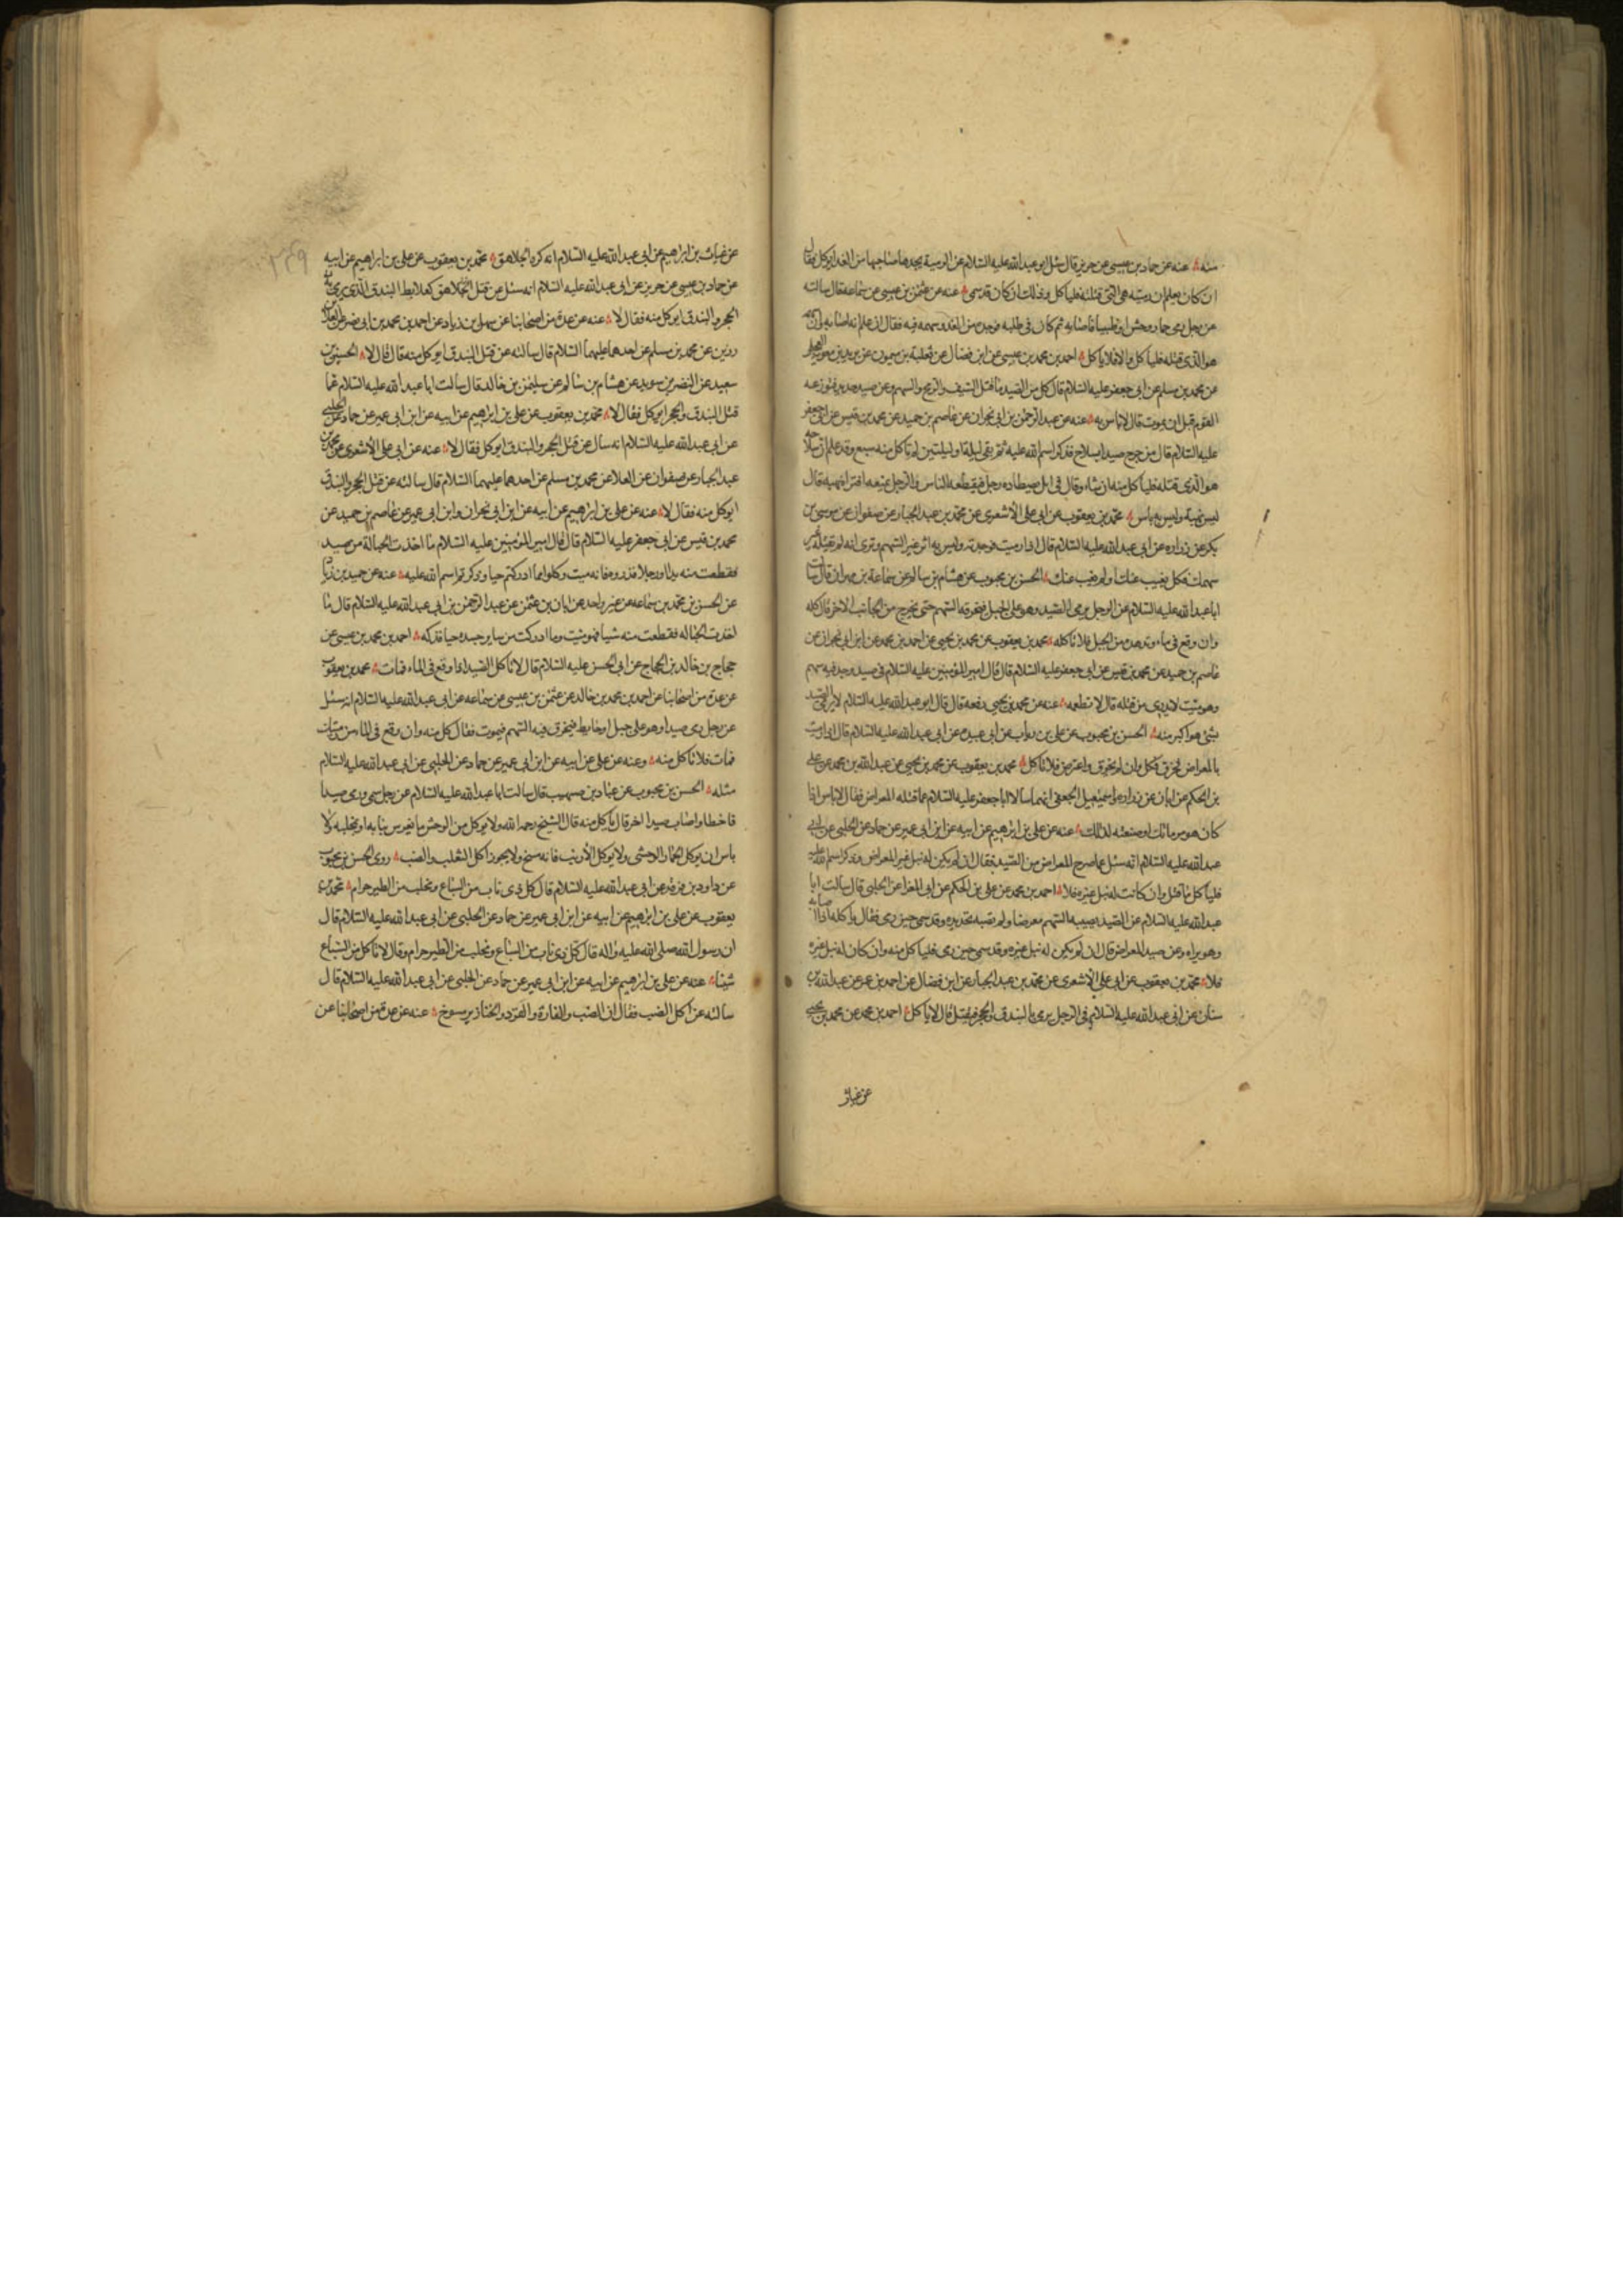 منه عنه عن حماد بن عيسى عن حريز قال سئل ابو عبد الله عليه السلام عن الرمية يجدها صاحبها من الغد ايوكل فقال
ان كان يعلم ان رميته هى التى قتلته فلياكل وذلك ان كان قد سمى عنه عن عثمن بن عيسى عن سماعه قال سالته
عن رجل رمى حمار وحش او ظبيا فاصابه ثم كان فى طلبه فوجده من الغد وسهمه فيه فقال ان علم انه اصابه وان سهمه
هو الذى قتله فلياكل والا فلا ياكل احمد بن محمد بن عيسى عن ابن فضال عن ثعلبة بن ميمون عن بريد بن معوية العجلى
عن محمد بن مسلم عن ابى جعفر عليه السلام قال كل من الصيد ما قتل السيف والرمح والسهم وعن صيد صيد فتوزعه
القوم قبل ان يموت قال لا باس به عنه عن عبد الرحمن بن ابى نجران عن عاصم بن حميد عن محمد بن قيس عن ابى جعفر
عليه السلام قال من جرح صيدا بسلاح فذكر اسم الله عليه ثم بقى ليلة او ليلتين لم ياكل منه سبع وقد علم ان سلاحه
هو الذى قتله فلياكل منه ان شاء وقال فى ايل يصطاده رجل فيقطعه الناس والرجل يتبعه افتراه نهبة قال
ليس بنهبة وليس به باس محمد بن يعقوب عن ابى على الاشعرى عن محمد بن عبد الجبار عن صفوان عن موسى بن
بكر عن زراره عن ابى عبد الله عليه السلام قال اذا رميت فوجدته وليس به اثر غير السهم وترى انه لم يقتله غير
سهمك فكل يغيب عنك او لم يغيب عنك الحسن بن محبوب عن هشام بن سالم عن سماعة بن مهران قال سالت
ابا عبد الله عليه السلام عن الرجل يرمى الصيد وهو على الجبل فيخرقه السهم حتى يخرج من الجانب الاخر قال كله
وان وقع فى ماء او تدهده من الجبل فلا تاكله محمد بن يعقوب عن محمد بن يحيى عن احمد بن محمد عن ابن ابى نجران عن
عاصم بن حميد عن محمد بن قيس عن ابى جعفر عليه السلام قال قال امير المؤمنين عليه السلام فى صيد وجد فيه سهم
وهو ميت لا يدرى من قتله قال لا تطعمه عنه عن محمد بن يحيى رفعه قال قال ابو عبد الله عليه السلام لا يرمى الصيد
بشئ هو اكبر منه الحسن بن محبوب عن على بن رئاب عن ابى عبيده عن ابى عبد الله عليه السلام قال اذا رميت
بالمعراض فخرق فكل وان لم يخرق واعترض فلا تاكل محمد بن يعقوب عن محمد بن يحيى عن عبد الله بن محمد عن على
بن الحكم عن ابان عن زراره واسمعيل الجعفى انهما سالا ابا جعفر عليه السلام عما قتله المعراض فقال لا باس اذا
كان هو مرماتك او صنعته لذلك عنه عن على بن ابراهيم عن ابيه عن ابن ابى عمير عن حماد عن الحلبى عن ابى
عبد الله عليه السلام انه سئل عما صرع المعراض من الصيد فقال ان لم يكن له نبل غير المعراض وذكر اسم الله عليه
فلياكل ما قتل وان كانت له نبل غيره فلا احمد بن محمد عن على بن الحكم عن ابى المغرا عن الحلبى قال سالت ابا
عبد الله عليه السلام عن الصيد يصيبه السهم معرضا ولم تصبه بحديده وقد سمى حين رمى فقال ياكله اذا اصابه
وهو يراه وعن صيد المعراض قال ان لم يكن له نبل غيره وقد سمى حين رمى فلياكل منه وان كان له نبل غيره
فلا محمد بن يعقوب عن ابى على الاشعرى عن محمد بن عبد الجبار عن ابن فضال عن احمد بن عمر عن عبد الله بن
سنان عن ابى عبد الله عليه السلام فى الرجل يرمى بالبندق والحجر فيقتل قال لا ياكل احمد بن محمد عن محمد بن يحيى
عن غياث
عن غياث بن ابراهيم عن ابى عبد الله عليه السلام انه كره الجلاهق محمد بن يعقوب عن على بن ابراهيم عن ابيه
عن حماد بن عيسى عن حريز عن ابى عبد الله عليه السلام انه سئل عن قتل الجلاهق كعلابط البندق الذى يرمى به
الحجر والبندق ايوكل منه فقال لا عنه عن عدة من اصحابنا عن سهل بن زياد عن احمد بن محمد بن ابى نصر عن العلا بن
رزين عن محمد بن مسلم عن احدهما عليهما السلام قال سالته عن قتل البندق ايوكل منه قال قال لا الحسين بن
سعيد عن النضر بن سويد عن هشام بن سالم عن سليمن بن خالد قال سالت ابا عبد الله عليه السلام عما
قتل البندق والحجر ايوكل فقال لا محمد بن يعقوب عن على بن ابراهيم عن ابيه عن ابن ابى عمير عن حماد عن الحلبى
عن ابى عبد الله عليه السلام انه سال عن قتل الحجر والبندق ايوكل فقال لا عنه عن ابى على الاشعرى عن محمد بن
عبد الجبار عن صفوان عن العلا عن محمد بن مسلم عن احدهما عليهما السلام قال سالته عن قتل الحجر والبندق
ايوكل منه فقال لا عنه عن على بن ابراهيم عن ابيه عن ابن ابى نجران وابن ابى عمير عن عاصم بن حميد عن
محمد بن قيس عن ابى جعفر عليه السلام قال قال امير المؤمنين عليه السلام ما اخذت الحبالة من صيد
فقطعت منه يدا او رجلا فذروه فانه ميت وكلوا مما ادركتم حيا وذكرتم اسم الله عليه عنه عن حميد بن زياد
عن الحسن بن محمد بن سماعه عن غير واحد عن ابان بن عثمن عن عبد الرحمن بن ابى عبد الله عليه السلام قال ما
اخذت الحباله فقطعت منه شيا فهو ميت وما ادركت من ساير جسده حيا فذكه احمد بن محمد بن عيسى عن
حجاج بن خالد بن الحجاج عن ابى الحسن عليه السلام قال لا تاكل الصيد اذا وقع فى الماء فمات محمد بن يعقوب
عن عدة من اصحابنا عن احمد بن محمد بن خالد عن عثمن بن عيسى عن سماعه عن ابى عبد الله عليه السلام انه سئل
عن رجل رمى صيدا وهو على جبل او حايط فيخرق فيه السهم فيموت فقال كل منه وان وقع فى الماء من رميتك
فمات فلا تاكل منه وعنه عن على عن ابيه عن ابن ابى عمير عن حماد عن الحلبى عن ابى عبد الله عليه السلام
مثله الحسن بن محبوب عن عباد بن صهيب قال سالت ابا عبد الله عليه السلام عن رجل سمى ورمى صيدا
فاخطا واصاب صيدا اخر قال ياكل منه قال الشيخ رحمه الله ولا يوكل من الوحش ما يفرس بنابه او بمخلبه ولا
باس ان يوكل الحمار الوحشى ولا يوكل الارنب فانه مسخ ولا يجوز اكل الثعلب والضب روى الحسن بن محبوب
عن داود بن فرقد عن ابى عبد الله عليه السلام قال كل ذى ناب من السباع ومخلب من الطير حرام محمد بن
يعقوب عن على بن ابراهيم عن ابيه عن ابن ابى عمير عن حماد عن الحلبى عن ابى عبد الله عليه السلام قال
ان رسول الله صلى الله عليه واله قال كل ذى ناب من السباع ومخلب من الطير حرام وقال لا تاكل من السباع
شيئا عنه عن على بن ابراهيم عن ابيه عن ابن ابى عمير عن حماد عن الحلبى عن ابى عبد الله عليه السلام قال
سالته عن اكل الضب فقال ان الضب والفارة والقرده والخنازير مسوخ عنه عن عدة من اصحابنا عن